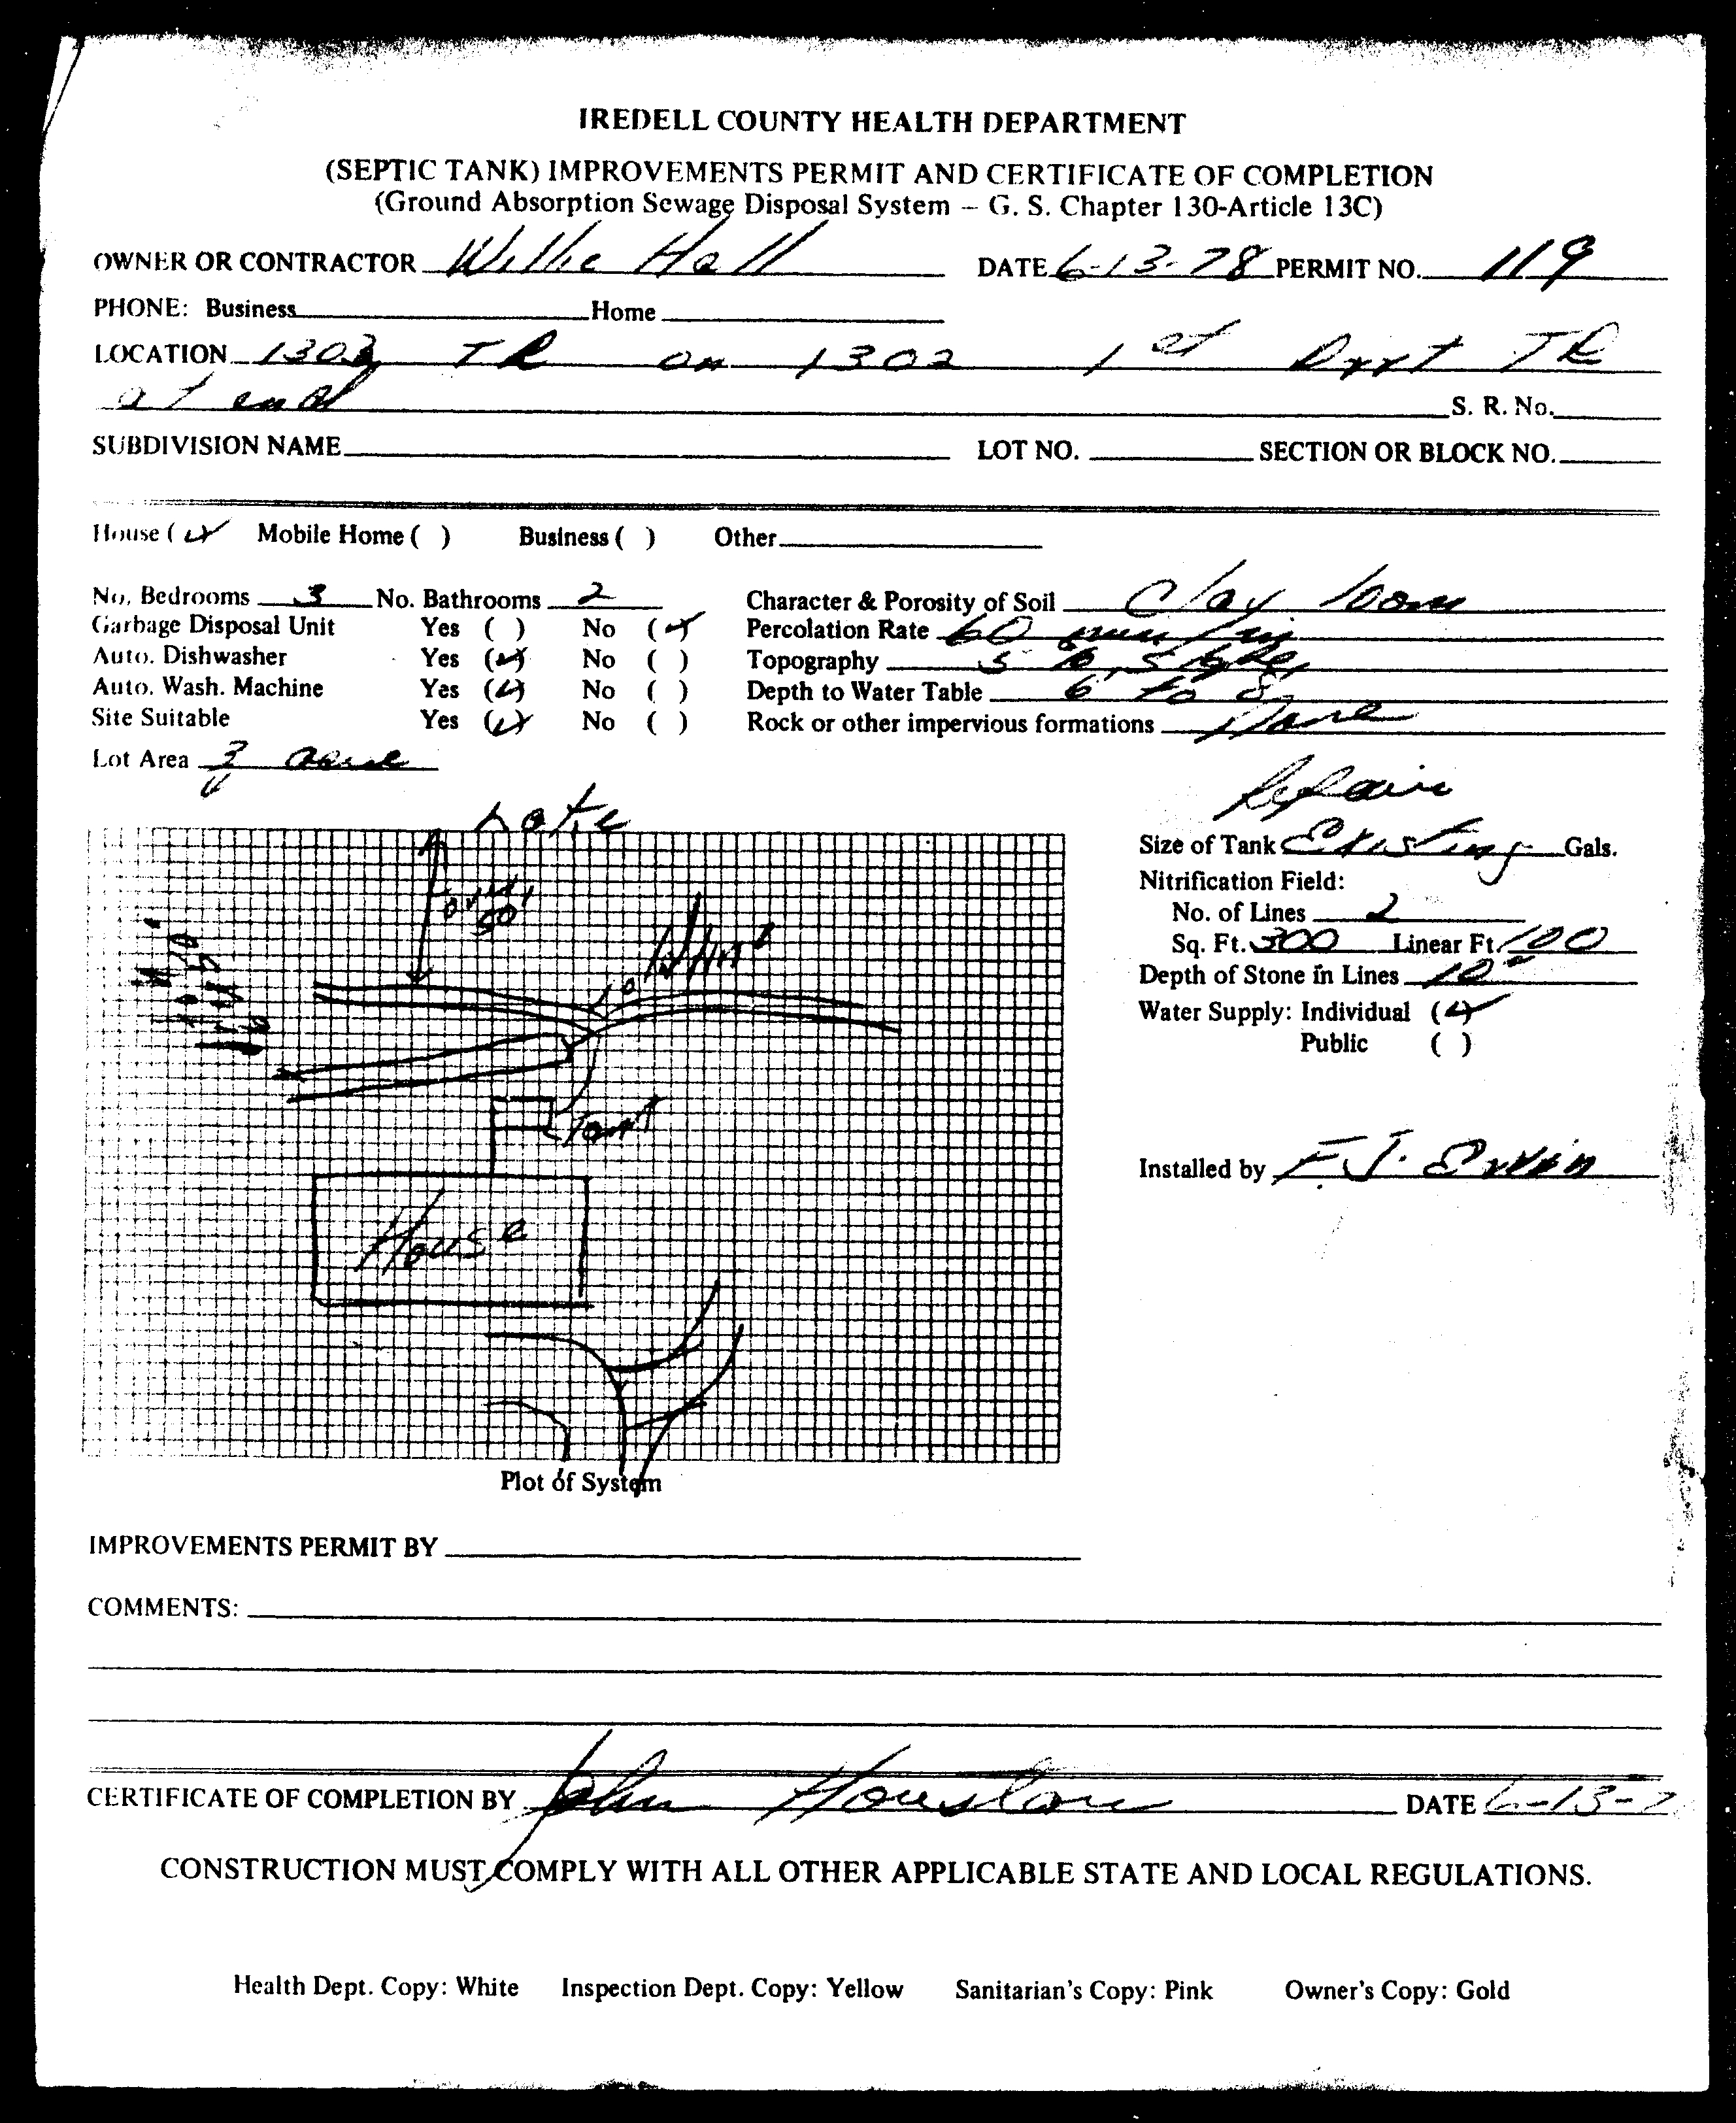 IREDELL COUNTY HEALTH DEPARTMENT
(SEPTIC TANK) IMPROVEMENTS PERMIT AND CERTIFICATE OF COMPLETION
(Ground Absorption Sewage Disposal System – G. S. Chapter 130-Article 13C)
OWNER OR CONTRACTOR Willie Hall DATE 6-13-78 PERMIT NO. 119
PHONE: Business Home
LOCATION 1303 TR on 1302 1st Dirt TR
at end S. R. No.
SUBDIVISION NAME LOT NO. SECTION OR BLOCK NO.
House (✓) Mobile Home ( ) Business ( ) Other
No. Bedrooms 3 No. Bathrooms 2 Character & Porosity of Soil Clay loam
Garbage Disposal Unit Yes ( ) No (✓) Percolation Rate 60 min/in
Auto. Dishwasher Yes (✓) No ( ) Topography 5 % slope
Auto. Wash. Machine Yes (✓) No ( ) Depth to Water Table 6' to 8'
Site Suitable Yes (✓) No ( ) Rock or other impervious formations None
Lot Area acre
Repair
Size of Tank Existing Gals.
Nitrification Field:
No. of Lines 2
Sq. Ft. 300 Linear Ft. 100
Depth of Stone in Lines 10"
Water Supply: Individual (✓)
Public ( )
Installed by F.J. Ervin
Lake
over
50'
Tank
House
Plot of System
IMPROVEMENTS PERMIT BY
COMMENTS:
CERTIFICATE OF COMPLETION BY John Houston DATE 6-13-7
CONSTRUCTION MUST COMPLY WITH ALL OTHER APPLICABLE STATE AND LOCAL REGULATIONS.
Health Dept. Copy: White Inspection Dept. Copy: Yellow Sanitarian's Copy: Pink Owner's Copy: Gold